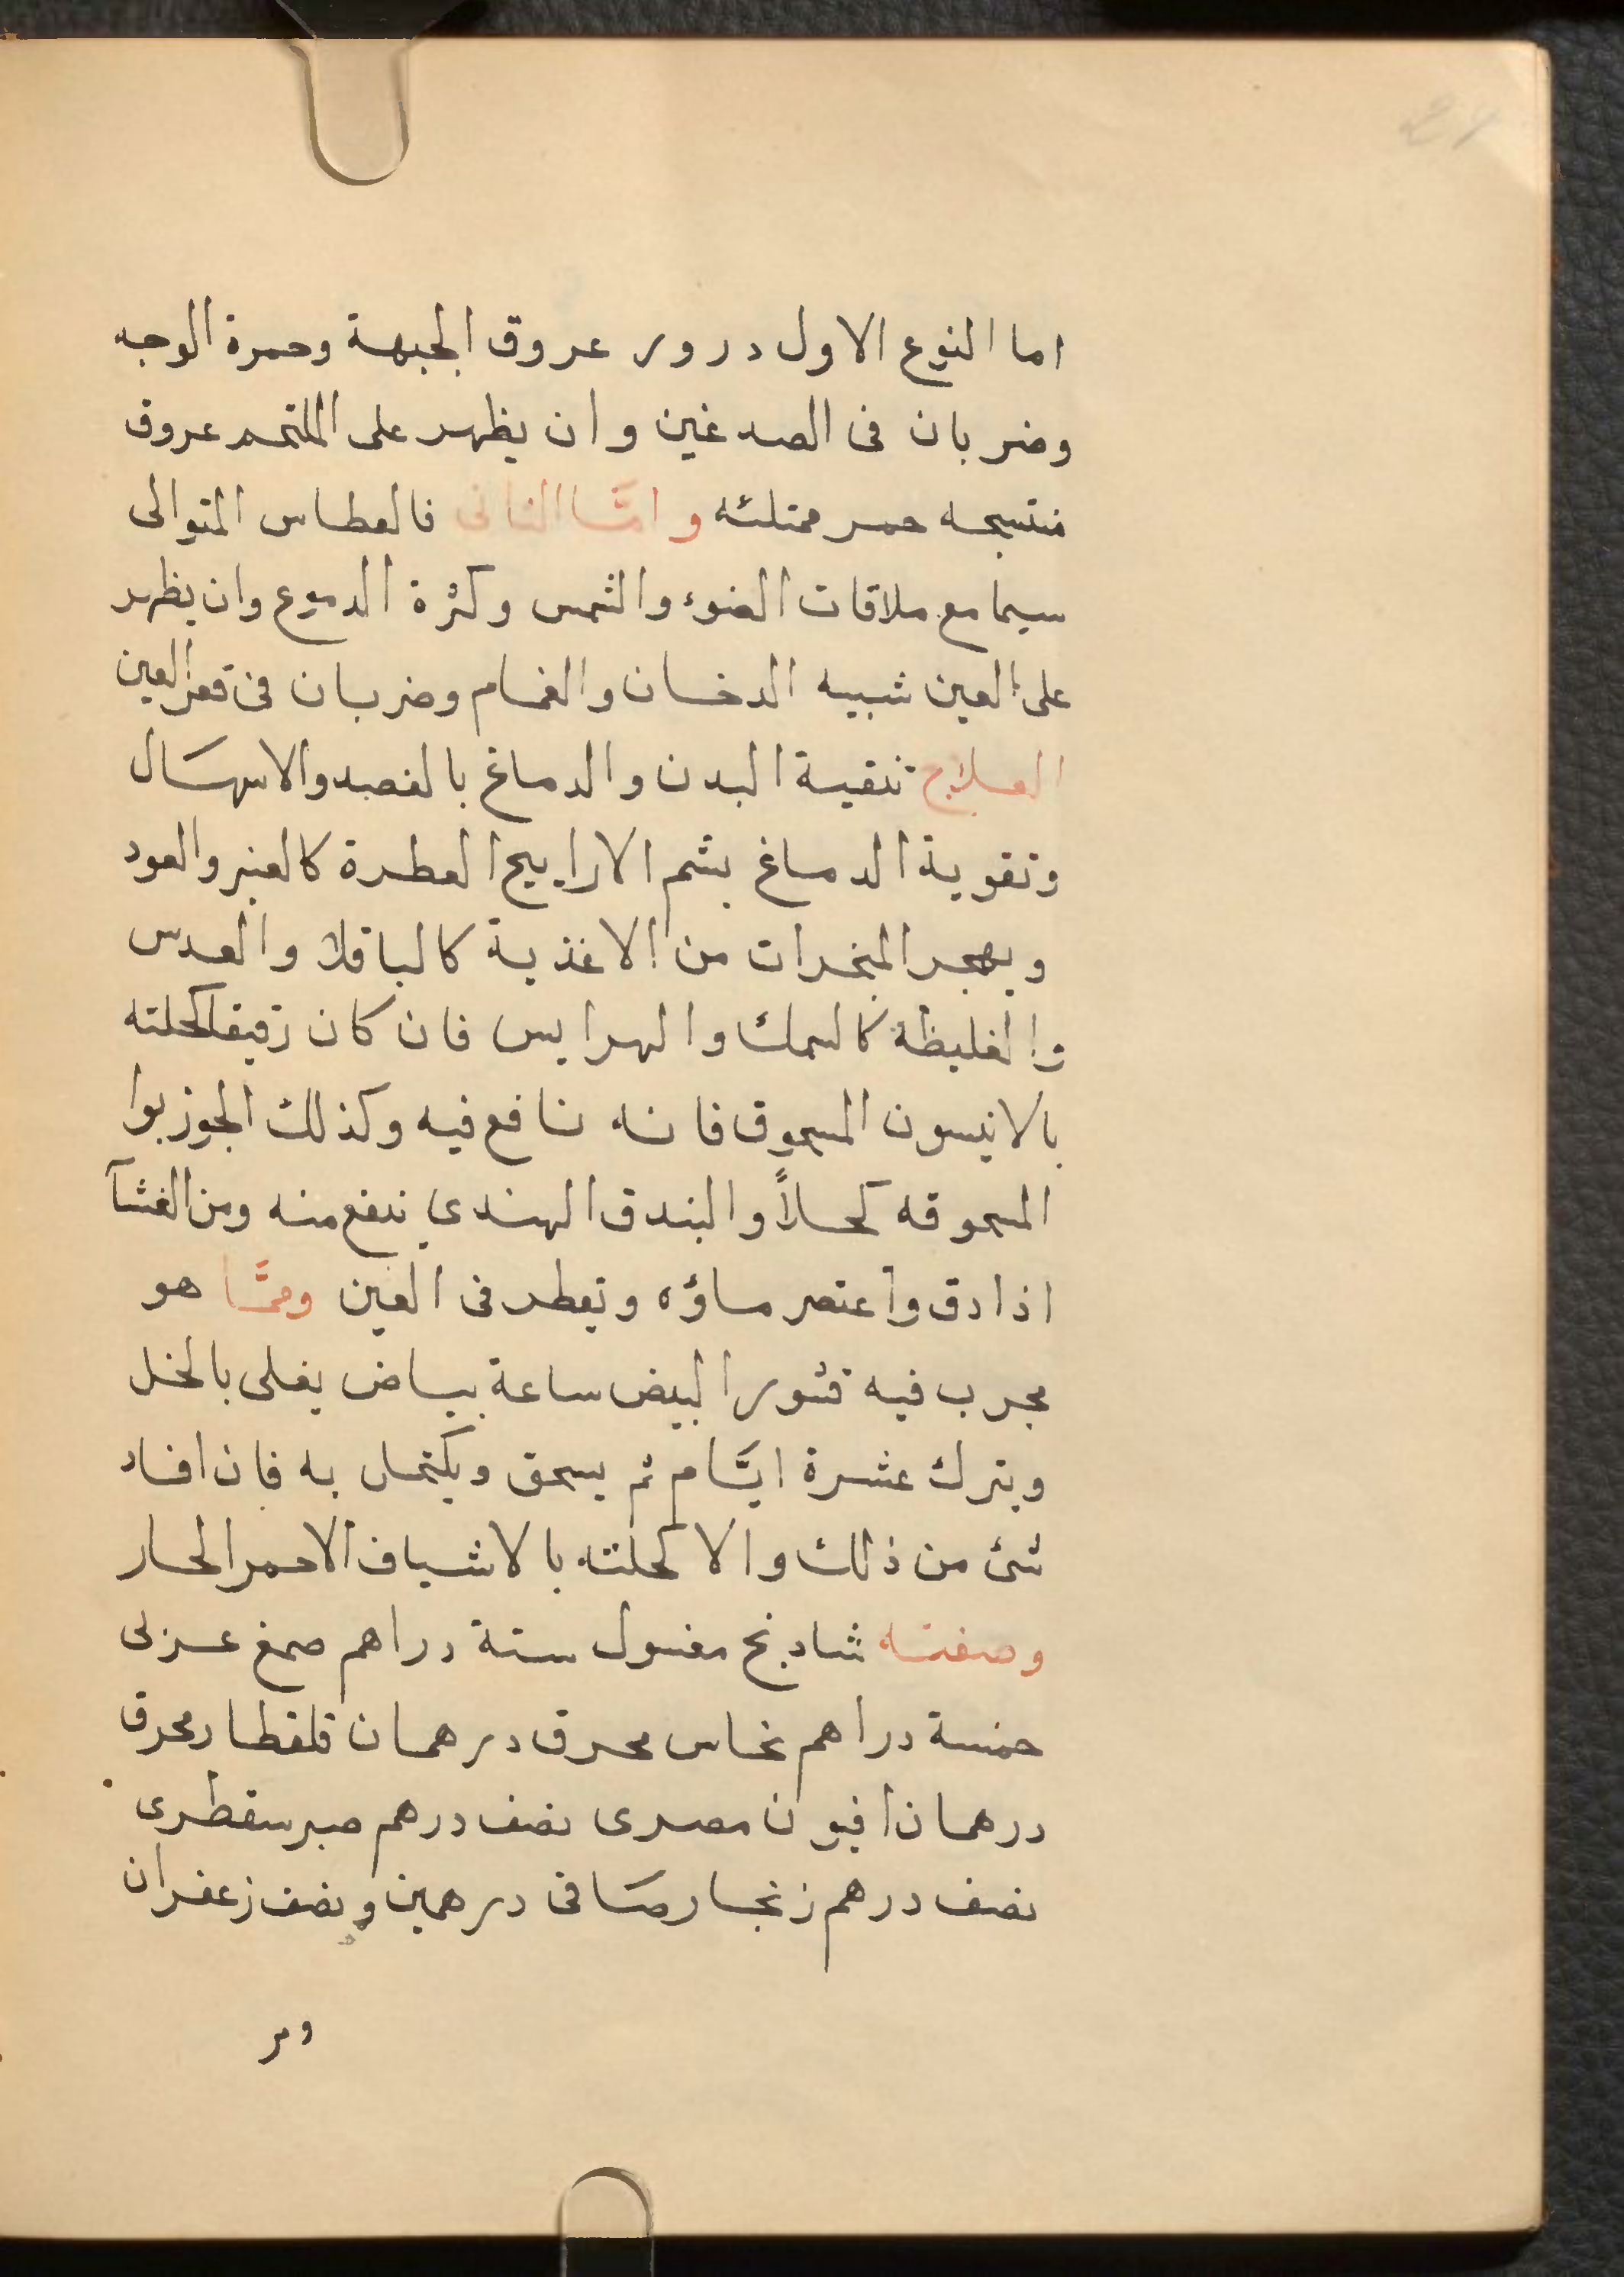 اما النوع الاول درور عروق الجبهة وحمرة الوجه
وضربان فى الصدغين وان يظهر على الملتحم عروق
منتسجه حمر ممتلئه وامَّا الثانى فالعطاس المتوالى
سيما مع ملاقات الضوء والشمس وكثرة الدموع وان يظهر
على العين شبيه الدخان والغمام وضربان فى قعر العين
العلاج تنقية البدن والدماغ بالفصد والاسهال
وتقوية الدماغ بشم الاراييح العطرة كالعنبر والعود
ويهجر المبخرات من الاغذية كالباقلا والعدس
والغليظة كالسمك والهرايس فان كان رقيقا كحلته
بالانيسون المسحوق فانه نافع فيه وكذلك الجوز بوا
المسحوقه كحلاً والبندق الهندى ينفع منه ومن الغشآ
اذا دق واعتصر ماؤه وتقطر فى العين وممَّا هو
مجرب فيه قشور البيض ساعة بياض يغلى بالخل
ويترك عشرة ايَّام ثم يسحق ويكتحل به فان افاد
شئ من ذلك والا كحلته بالاشياف الاحمر الحار
وصفته شادنج مغسول ستة دراهم صمغ عربى
خمسة دراهم نحاس محرق درهمان قلقطار محرق
درهمان افيون مصرى نصف درهم صبر سقطرى
نصف درهم زنجار صافى درهمين ونصف زعفران
ومر